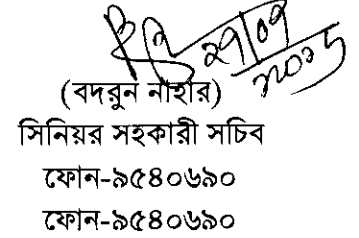 (বদরুন নাহার)
সিনিয়র সহকারী সচিব
ফোন-৯৫৪০৬৯০
ফোন-৯৫৪০৬৯০